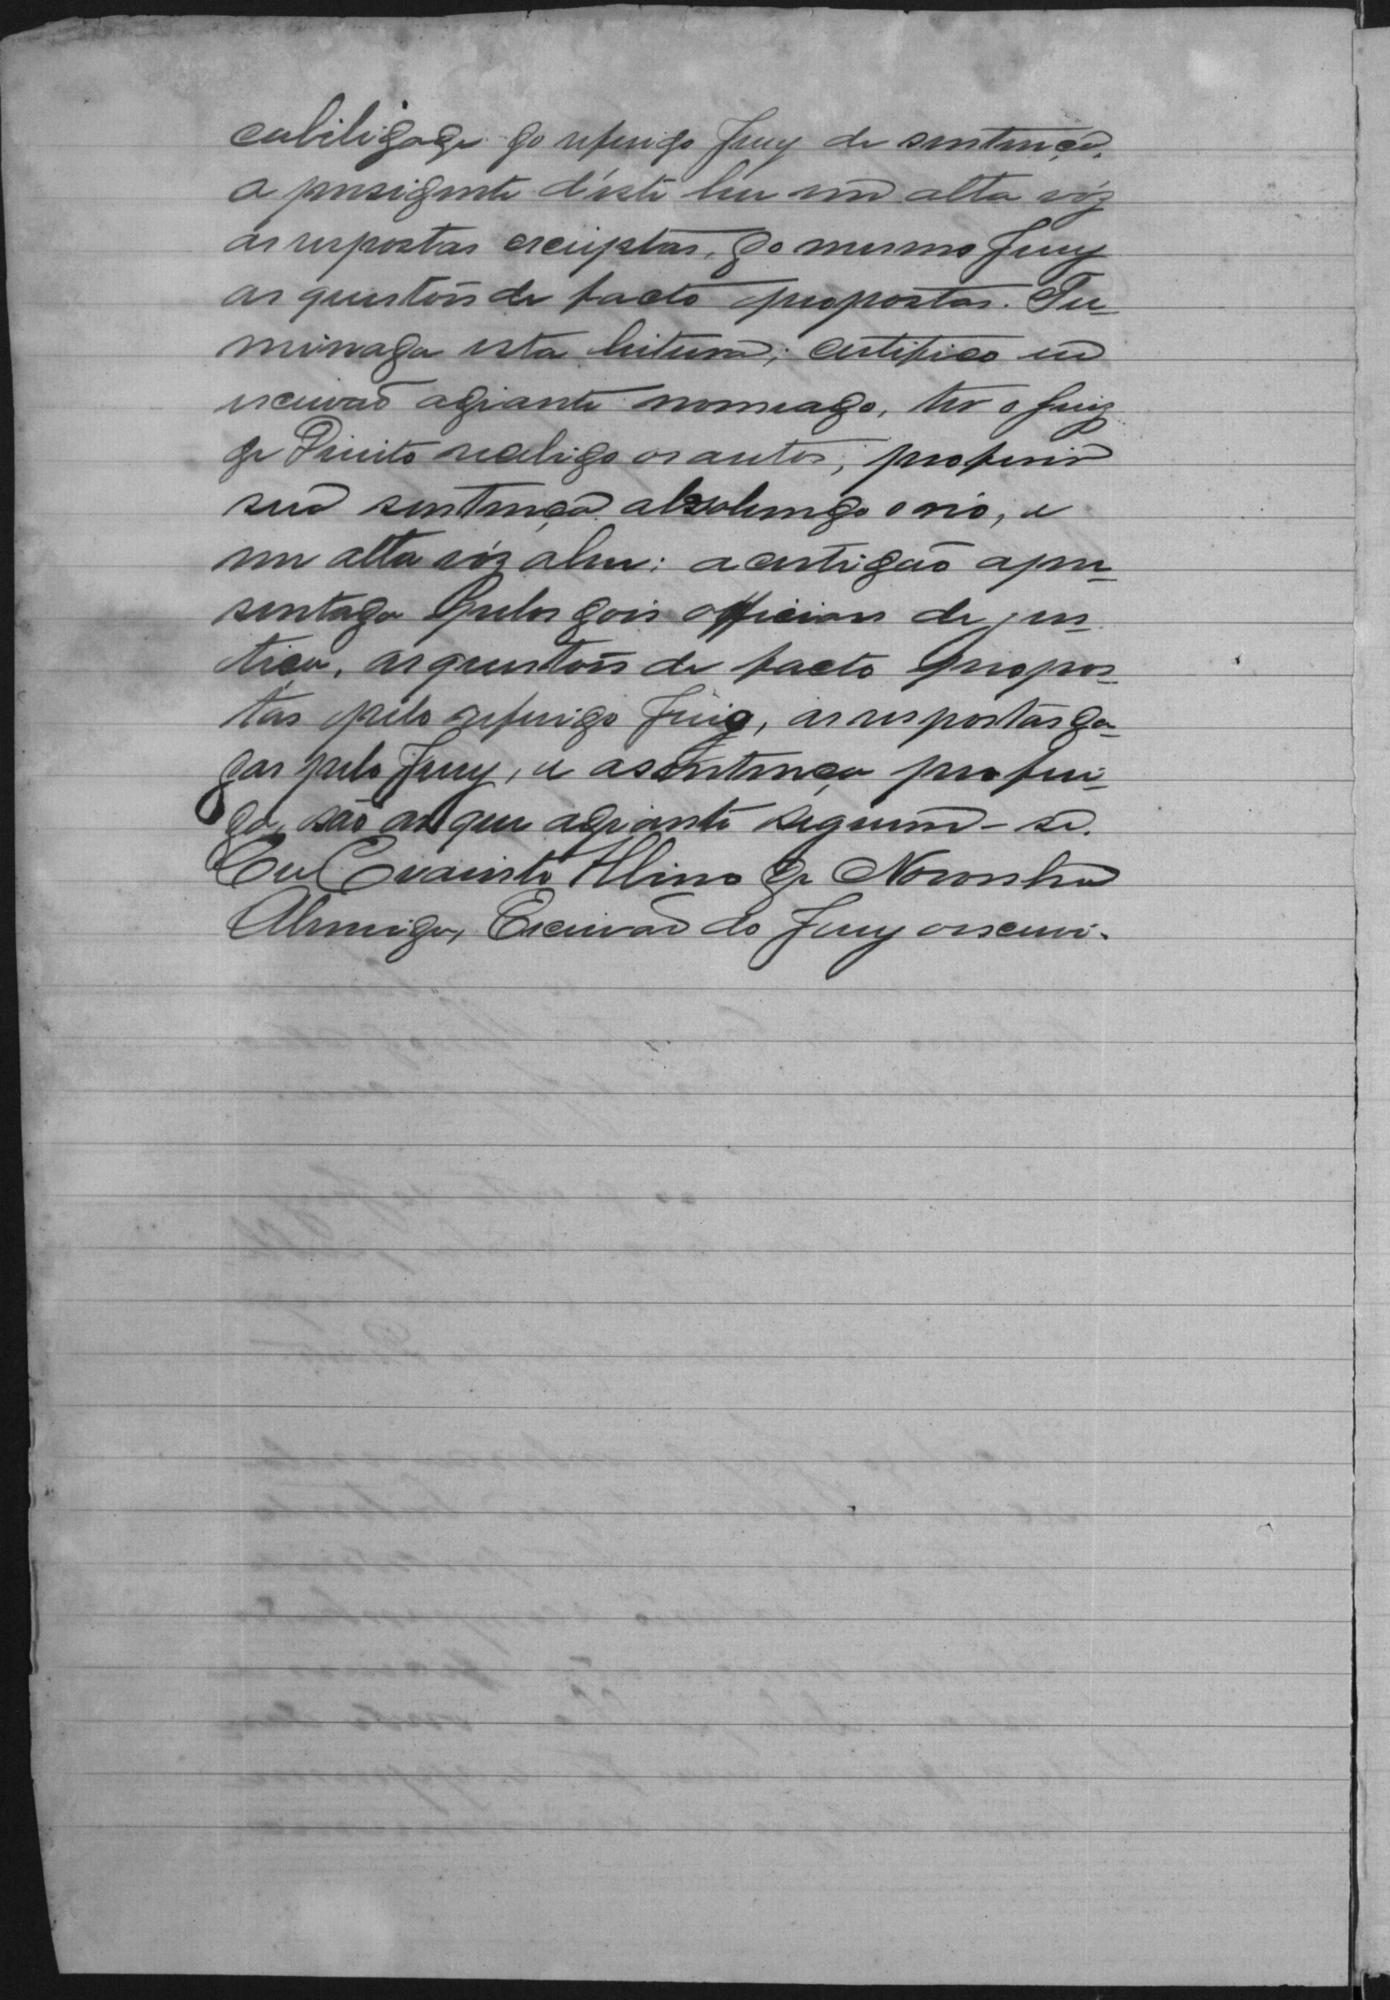 cabilidade do referido Jury de sentença,
o presidente d'este leu em alta vóz
as respostas escriptas, do mesmo Jury
as questões de facto propostas. Ter-
minada esta leitura; certifico eu
escrivão adiante nomeado, ter o Juiz
de Direito recebido os autos, proferir
sua sentença absolvendo o réo, e
em alta vóz a leu: a certidão apre-
sentada pelos dois officiaes de jus-
tiça, as questões de facto propos-
tas pelo referido Juiz, as respostas da-
das pelo Jury, e a sentença proferi-
da, são as que adiante seguem-se.
Eu Evaristo Albino de Noronha
Almeida, Escrivão do Jury o escrevi.